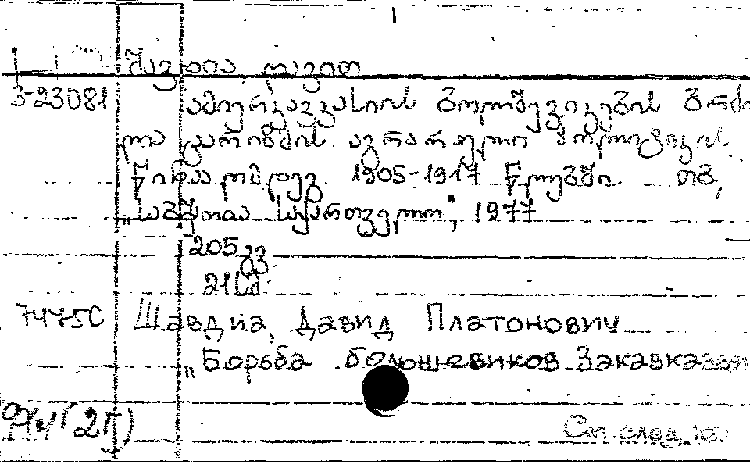 შავდია, დავით
3-23081
ამიერკავკასიის ბოლშევიკების ბრძ
და ცარიზმის აგრარული პოლიტიკის
წინააღმდეგ 1905-1917 წლებში თბ,
„საბჭოთა საქართველო", 1977
205 გვ
21 სმ
7475С Шавдиа, Давид Платонович
„Борьба большевиков Закавказья
См. след.